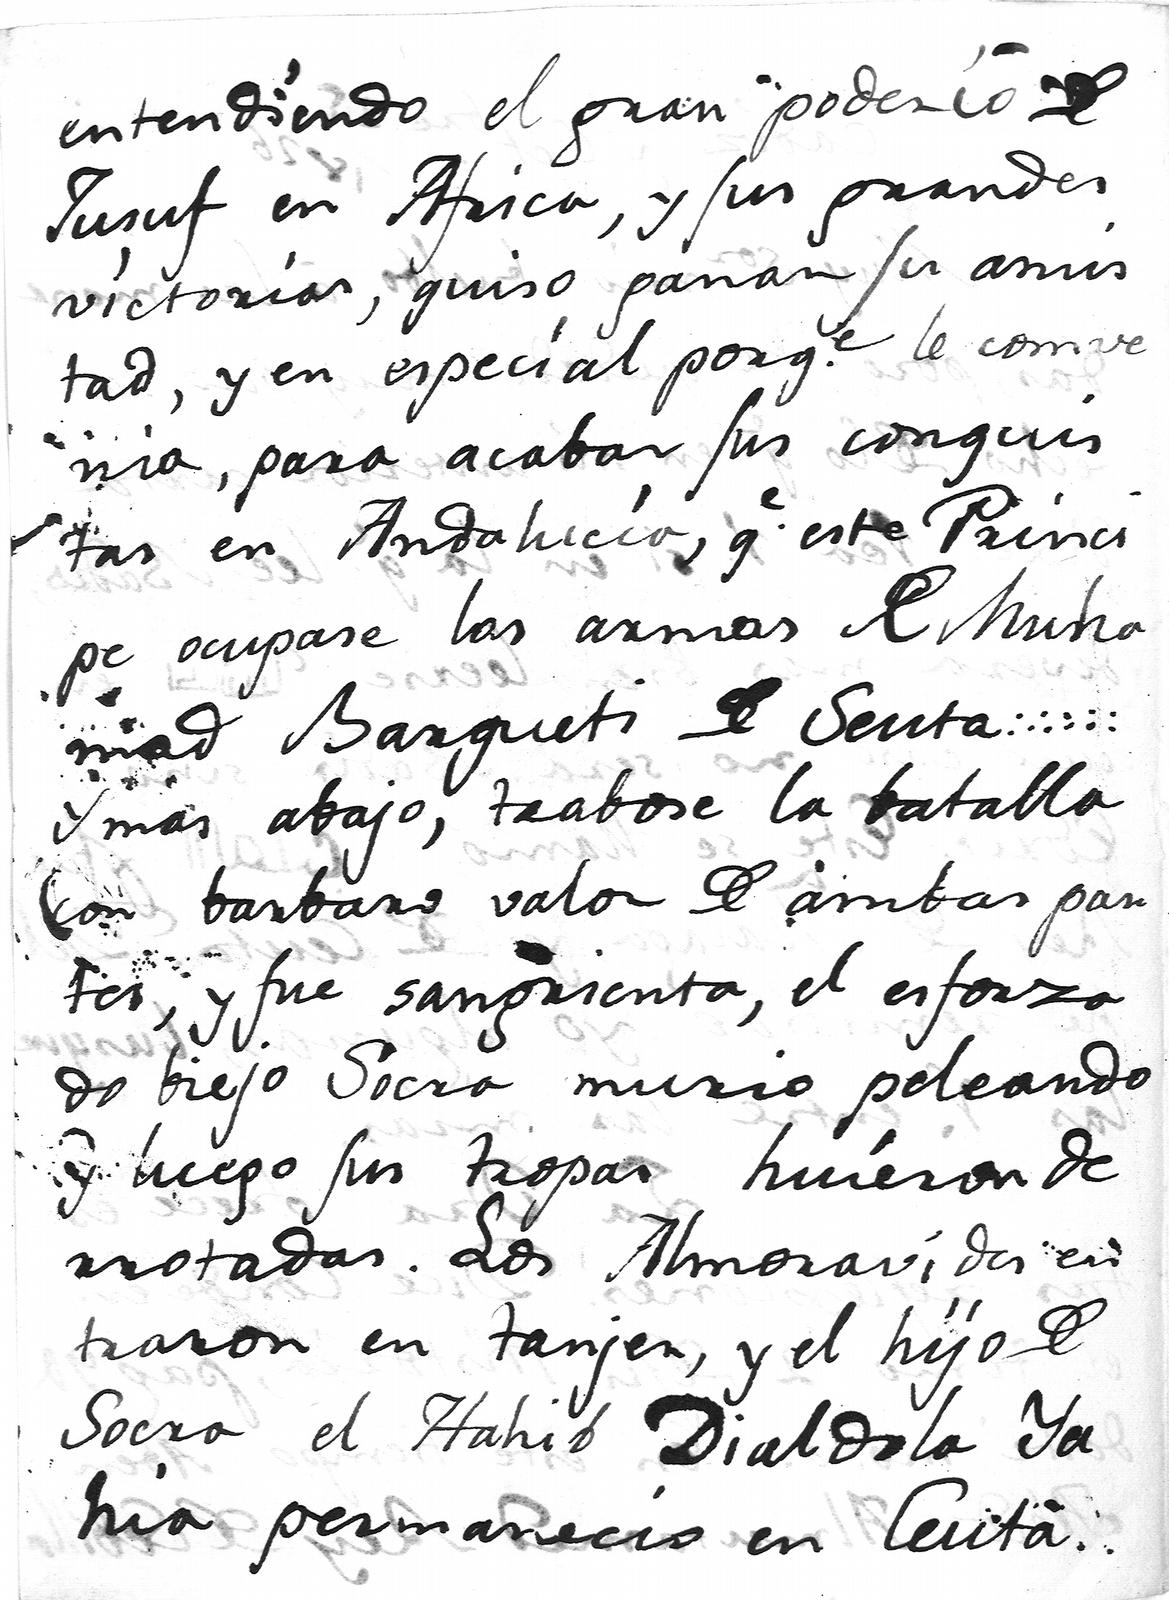 entendíendo el gran poderío de
Iusuf en Africa, y sus grandes
víctorías, quiso, ganar su amis
tad, y en especíal porq.e le comve
nia, para acabar sus conquis
tas en Andalucía, q.e este Prínci
pe ocupase las armas de Muha
mad Bargueti de Seuta::::::
y mas abajo, trabose la batalla
con barbaro valor de ambas par
tes, y fue sangrienta, el esforza
do biejo Socra murio peleando
y luego sus tropas huíeron de
rrotadas. Los Almoravídes en
traron en tanjer, y el híjo de
Socra el Hahib Dialdola Ya
hia permanecio en Ceuta..